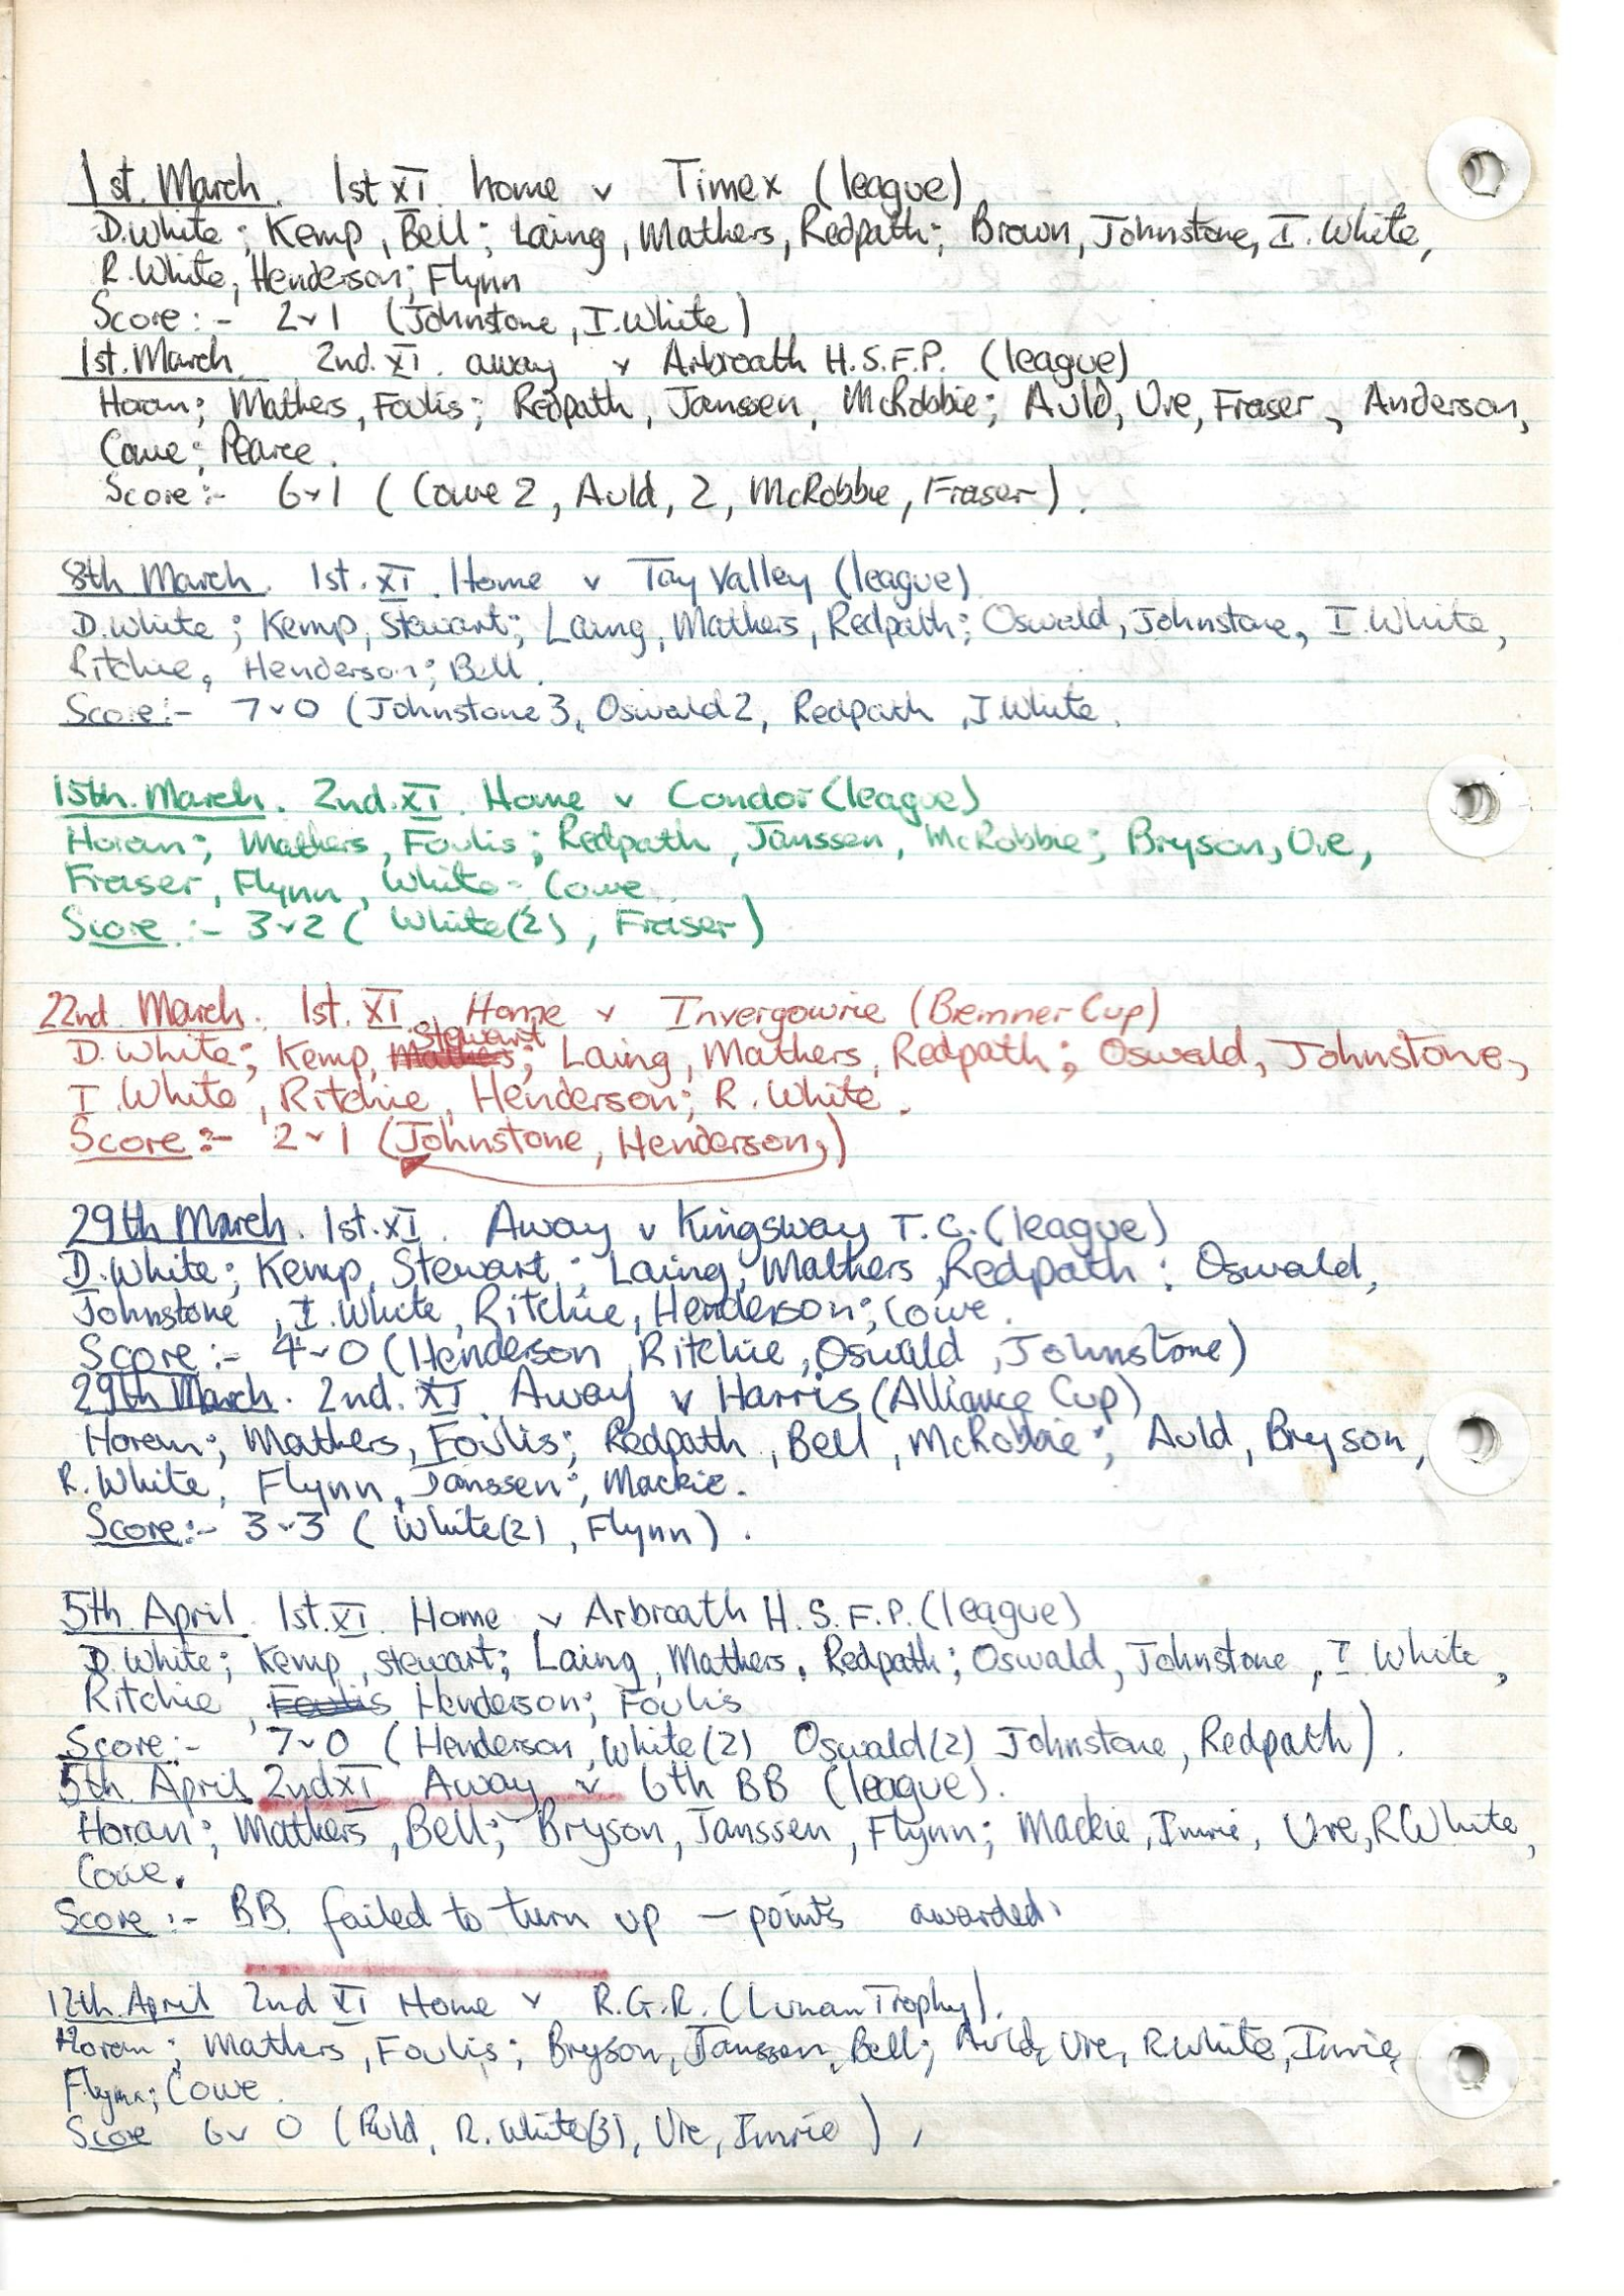 1st. March. 1st XI home v Timex (league)
D.White; Kemp, Bell; Laing, Mathers, Redpath; Brown, Johnstone, I. White,
R. White, Henderson; Flynn
Score:- 2v1 (Johnstone, I.White)
1st. March. 2nd. XI. away v Arbroath H.S.F.P. (league)
Horan; Mathers, Foulis; Redpath, Janssen, McRobbie; Auld, Ure, Fraser, Anderson,
Cowe; Pearce.
Score:- 6v1 (Cowe 2, Auld, 2, McRobbie, Fraser).
8th March. 1st. XI. Home v Tay Valley (league)
D.White; Kemp, Stewart; Laing, Mathers, Redpath; Oswald, Johnstone, I.White,
Ritchie, Henderson; Bell.
Score:- 7v0 (Johnstone 3, Oswald 2, Redpath, I.White.
15th. March. 2nd. XI. Home v Condor (league)
Horan; Mathers, Foulis; Redpath, Janssen, McRobbie; Bryson, Ure,
Fraser, Flynn, White; Cowe.
Score:- 3v2 (White(2), Fraser)
22nd. March. 1st. XI. Home v Invergowrie (Bremner Cup)
D. White; Kemp, Stewart; Laing, Mathers, Redpath; Oswald, Johnstone,
I. White, Ritchie, Henderson; R. White.
Score:- 2v1 (Johnstone, Henderson,)
29th March. 1st. XI. Away v Kingsway T.C. (league)
D.White; Kemp, Stewart; Laing, Mathers, Redpath; Oswald,
Johnstone, I. White, Ritchie, Henderson; Cowe.
Score:- 4v0 (Henderson, Ritchie, Oswald, Johnstone)
29th March. 2nd. XI. Away v Harris (Alliance Cup)
Horan; Mathers, Foulis; Redpath, Bell, McRobbie; Auld, Bryson,
R. White, Flynn, Janssen; Mackie.
Score:- 3v3 (White(2), Flynn).
5th April. 1st. XI. Home v Arbroath H.S.F.P. (league)
D.White; Kemp, Stewart; Laing, Mathers, Redpath; Oswald, Johnstone, I. White,
Ritchie, Foulis Henderson; Foulis
Score:- 7v0 (Henderson, White(2) Oswald(2) Johnstone, Redpath).
5th. April 2nd XI Away v 6th BB (league).
Horan; Mathers, Bell; Bryson, Janssen, Flynn; Mackie, Imrie, Ure, R White,
Cowe.
Score:- BB. failed to turn up - points awarded.
12th. April 2nd XI Home v R.G.R. (Lunan Trophy).
Horan; Mathers, Foulis; Bryson, Janssen, Bell; Auld, Ure, R.White, Imrie,
Flynn; Cowe.
Score 6v 0 (Auld, R. White(3), Ure, Imrie),